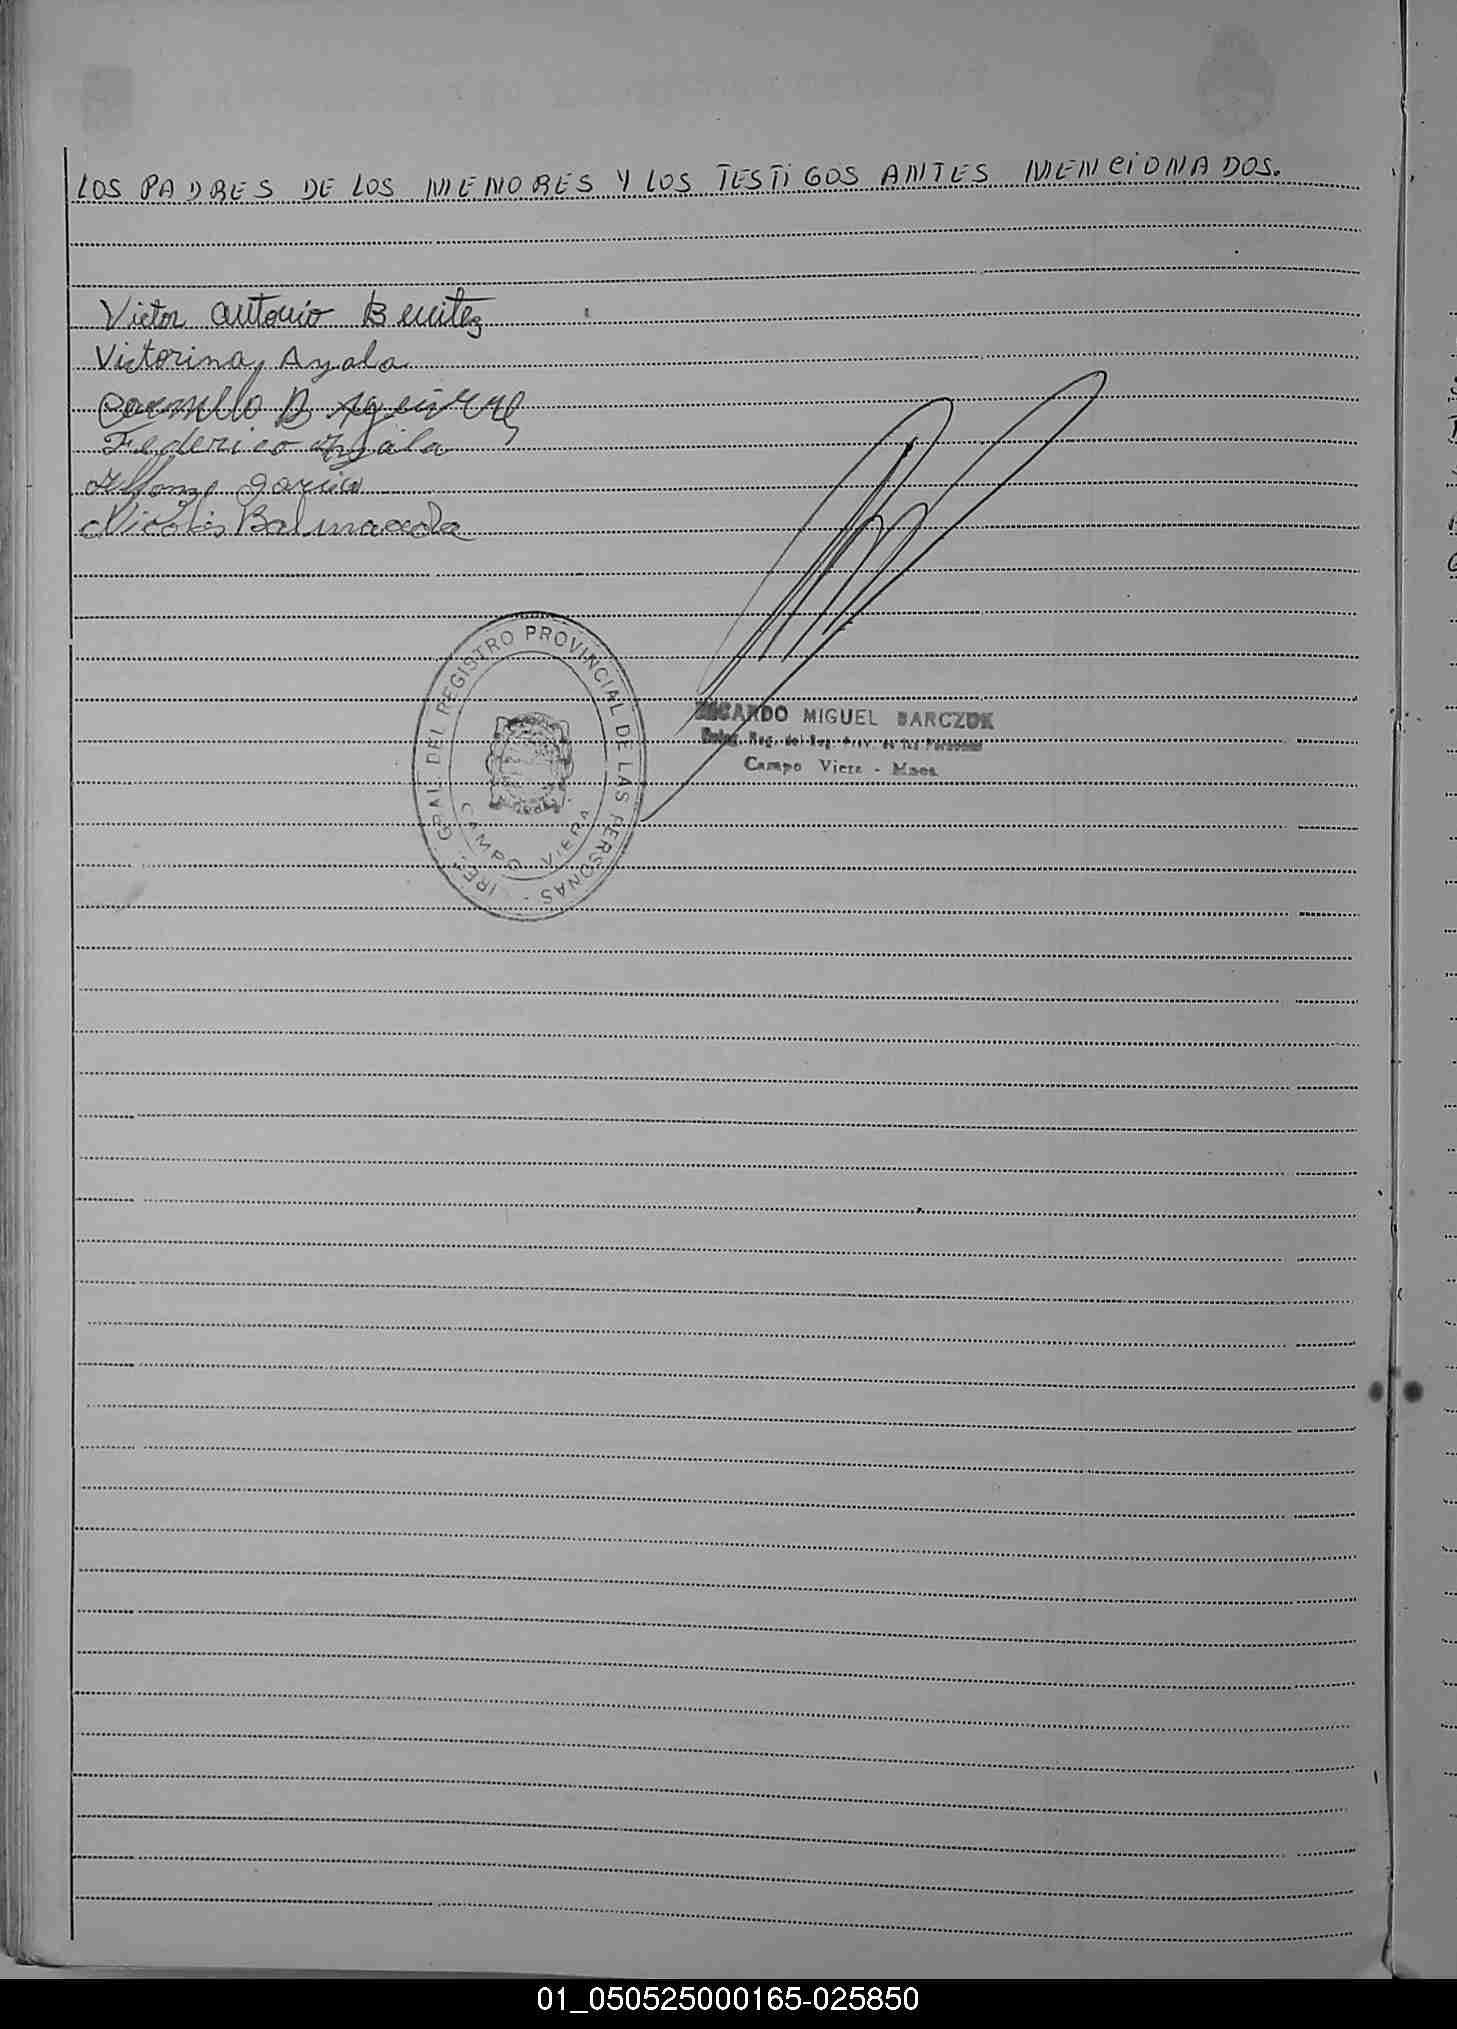 LOS PADRES DE LOS MENORES Y LOS TESTIGOS ANTES MENCIONADOS.
Victor Antonio Benitez
Victorina Ayala
B Ageirre
Federico Ayala
Garcia
Nicolás Balmaceda
GRAL. DEL REGISTRO PROVINCIAL DE LAS PERSONAS -
CAMPO VIERA
RICARDO MIGUEL BARCZUK
Deleg. Reg. del Reg. Prov. de las Personas
Campo Viera - Mnes.
01_050525000165-025850